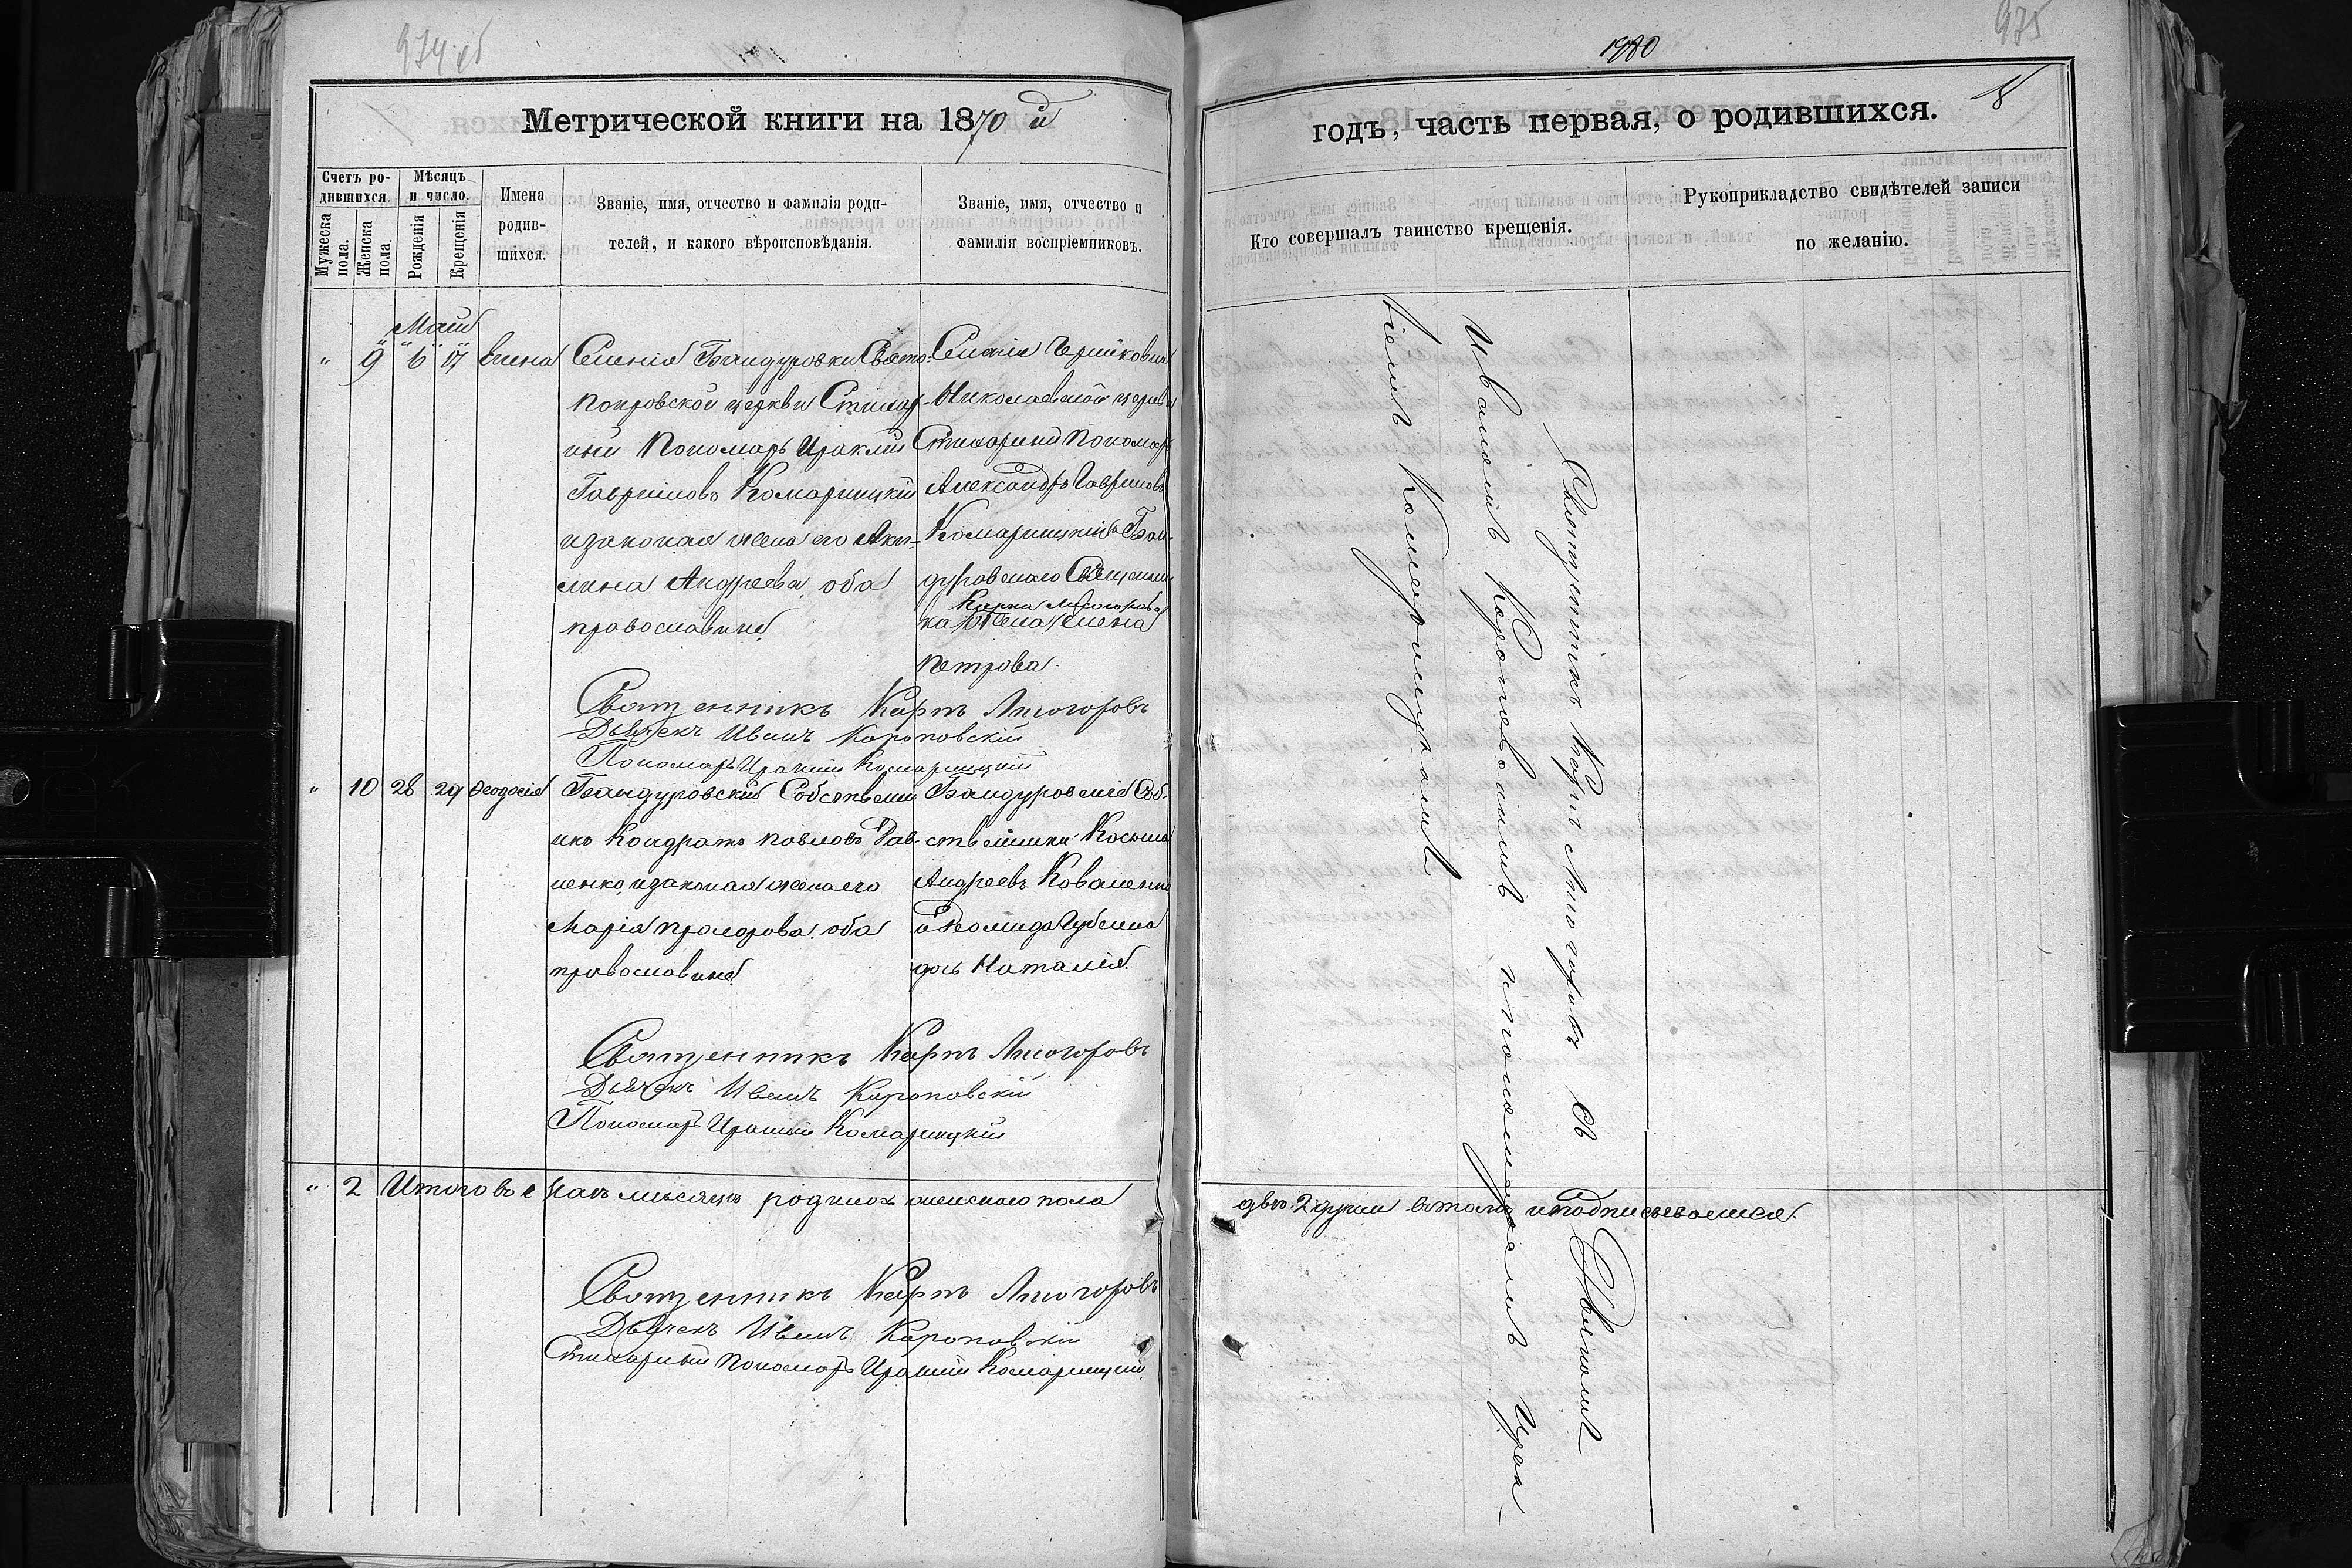 974 об
Метрической книги на 1870 й
Счетъ родившихся.
Мѣсяцъ и число.
Мужеска пола.
Женска пола.
Рожденія
Крещенія
Имена родившихся.
Званіе, имя, отчество и фамилія родителей, и какого вѣроисповѣданія.
Званіе, имя, отчество и фамилія воспріемниковъ.
Май
" 9 6 17 Елена
Селенія Бандуровки Свято-
покровской церкви Стихар-
ный Пономарь Ираклій
Гавриловъ Комарницкій
изаконая жена его Аку-
лина Андреева, оба
православные.
Селенія
Николаевской церкви
Стихарный Пономарь
Александръ Гавриловъ
Комарницкій и Бан-
дуровскаго Священни-
Карпа Лисогорова
ка жена Елена
Петрова.
Священникъ Карпъ Лисогоровъ
Дьячекъ Иванъ Кароповскій
Пономарь Ираклій Комарницкій
" 10 28 29 Феодосія
Бандуровскій Собственни
икъ Кондратъ Павловъ Пав-
ленко, изаконая жена его
Марія Прохорова, оба
православные.
Бандуровскіе Соб-
ственники Косьма
Андреевъ Коваленко
дочь Наталія.
Священникъ Карпъ Лисогоровъ
Дьячекъ Иванъ Кароповскій
Пономарь Ираклій Комарницкій
" 2 Итого въ Маѣ мѣсяцѣ родилось женскаго пола
Священникъ Карпъ Лисогоровъ
Дьячекъ Иванъ Кароповскій
Стихарный Пономарь Ираклій Комарницкій
975
1980
годъ, часть первая, о родившихся.
Кто совершалъ таинство крещенія.
Рукоприкладство свидѣтелей записи по желанію.
Священникъ Карпъ Лисогоровъ съ Дьячкомъ
Иваномъ Кароповскимъ и пономаремъ Ирак-
ліемъ Комарницкимъ
двѣ 2 души въ томъ и подписываемся.